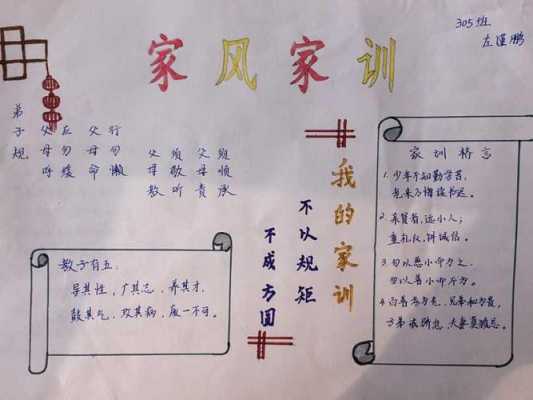 家风家训
305班
左 鹏
弟子规
父母呼
应勿缓
父母命
行勿懒
父母教
须敬听
父母责
须顺承
教子有五:
导其性,广其志,养其才,
鼓其气,攻其病,废一不可。
我的家训
不以规矩
不成方圆
家训格言
1.少年不知勤学苦,
老来方悔读书迟。
2.亲贤者,远小人;
重礼仪,讲诚信。
3.勿以恶小而为之,
勿以善小而不为。
4.百善孝为先,兄弟和为贵,
子弟 ,夫妻莫 忌。